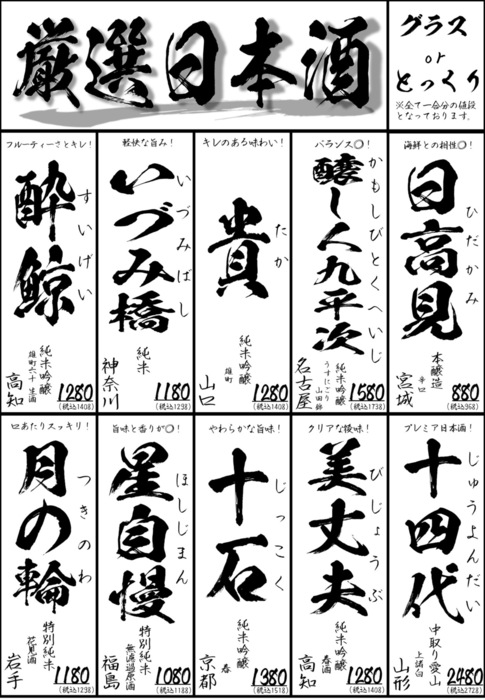 厳選日本酒
グラス
or
とっくり
※全て一合分の値段
となっております。
海鮮との相性◎!
日高見
ひだかみ
本醸造
辛口
宮城
880
(税込968)
バランス◎!
醸し人九平次
かもしびとくへいじ
純米吟醸
うすにごり 山田錦
名古屋
1580
(税込1738)
キレのある味わい!
貴
たか
純米吟醸
雄町
山口
1280
(税込1408)
軽快な旨み!
いづみ橋
いづみばし
純米
神奈川
1180
(税込1298)
フルーティーさとキレ!
酔鯨
すいげい
純米吟醸
雄町六十 生酒
高知
1280
(税込1408)
プレミア日本酒!
十四代
じゅうよんだい
中取り愛山
上諸白
山形
2480
(税込2728)
クリアな後味!
美丈夫
びじょうぶ
純米吟醸
春酒
高知
1280
(税込1408)
やわらかな旨味!
十石
じっこく
純米吟醸
春
京都
1380
(税込1518)
旨味と香りが◎!
星自慢
ほしじまん
特別純米
無濾過原酒
福島
1080
(税込1188)
口あたりスッキリ!
月の輪
つきのわ
特別純米
花見酒
岩手
1180
(税込1298)